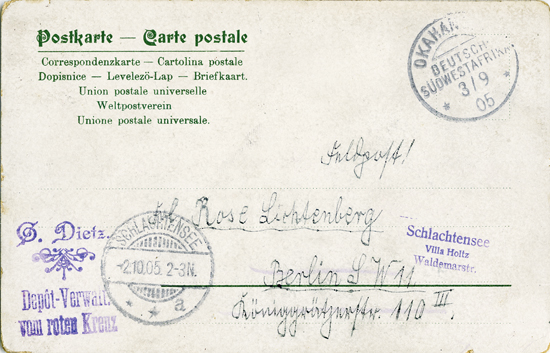 Postkarte — Carte postale
Correspondenzkarte — Cartolina postale
Dopisnice — Levelezö-Lap — Briefkaart.
Union postale universelle
Weltpostverein
Unione postale universale.
OKAHAN
DEUTSCH-
SÜDWESTAFRIKA
3/9
05
Feldpost!
Rose Lichtenberg
G. Dietz.
Depôt-Verwalt.
vom roten Kreuz
SCHLACHTENSEE
-2.10.05. 2-3N.
* * a
Schlachtensee
Villa Holtz
Waldemarstr.
Berlin S W 11
Königgrätzerstr. 110 III